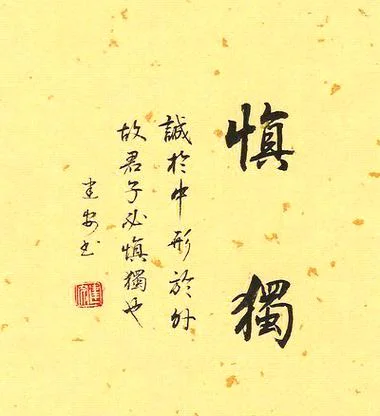 慎獨
誠於中形於外
故君子必慎獨也
建安书